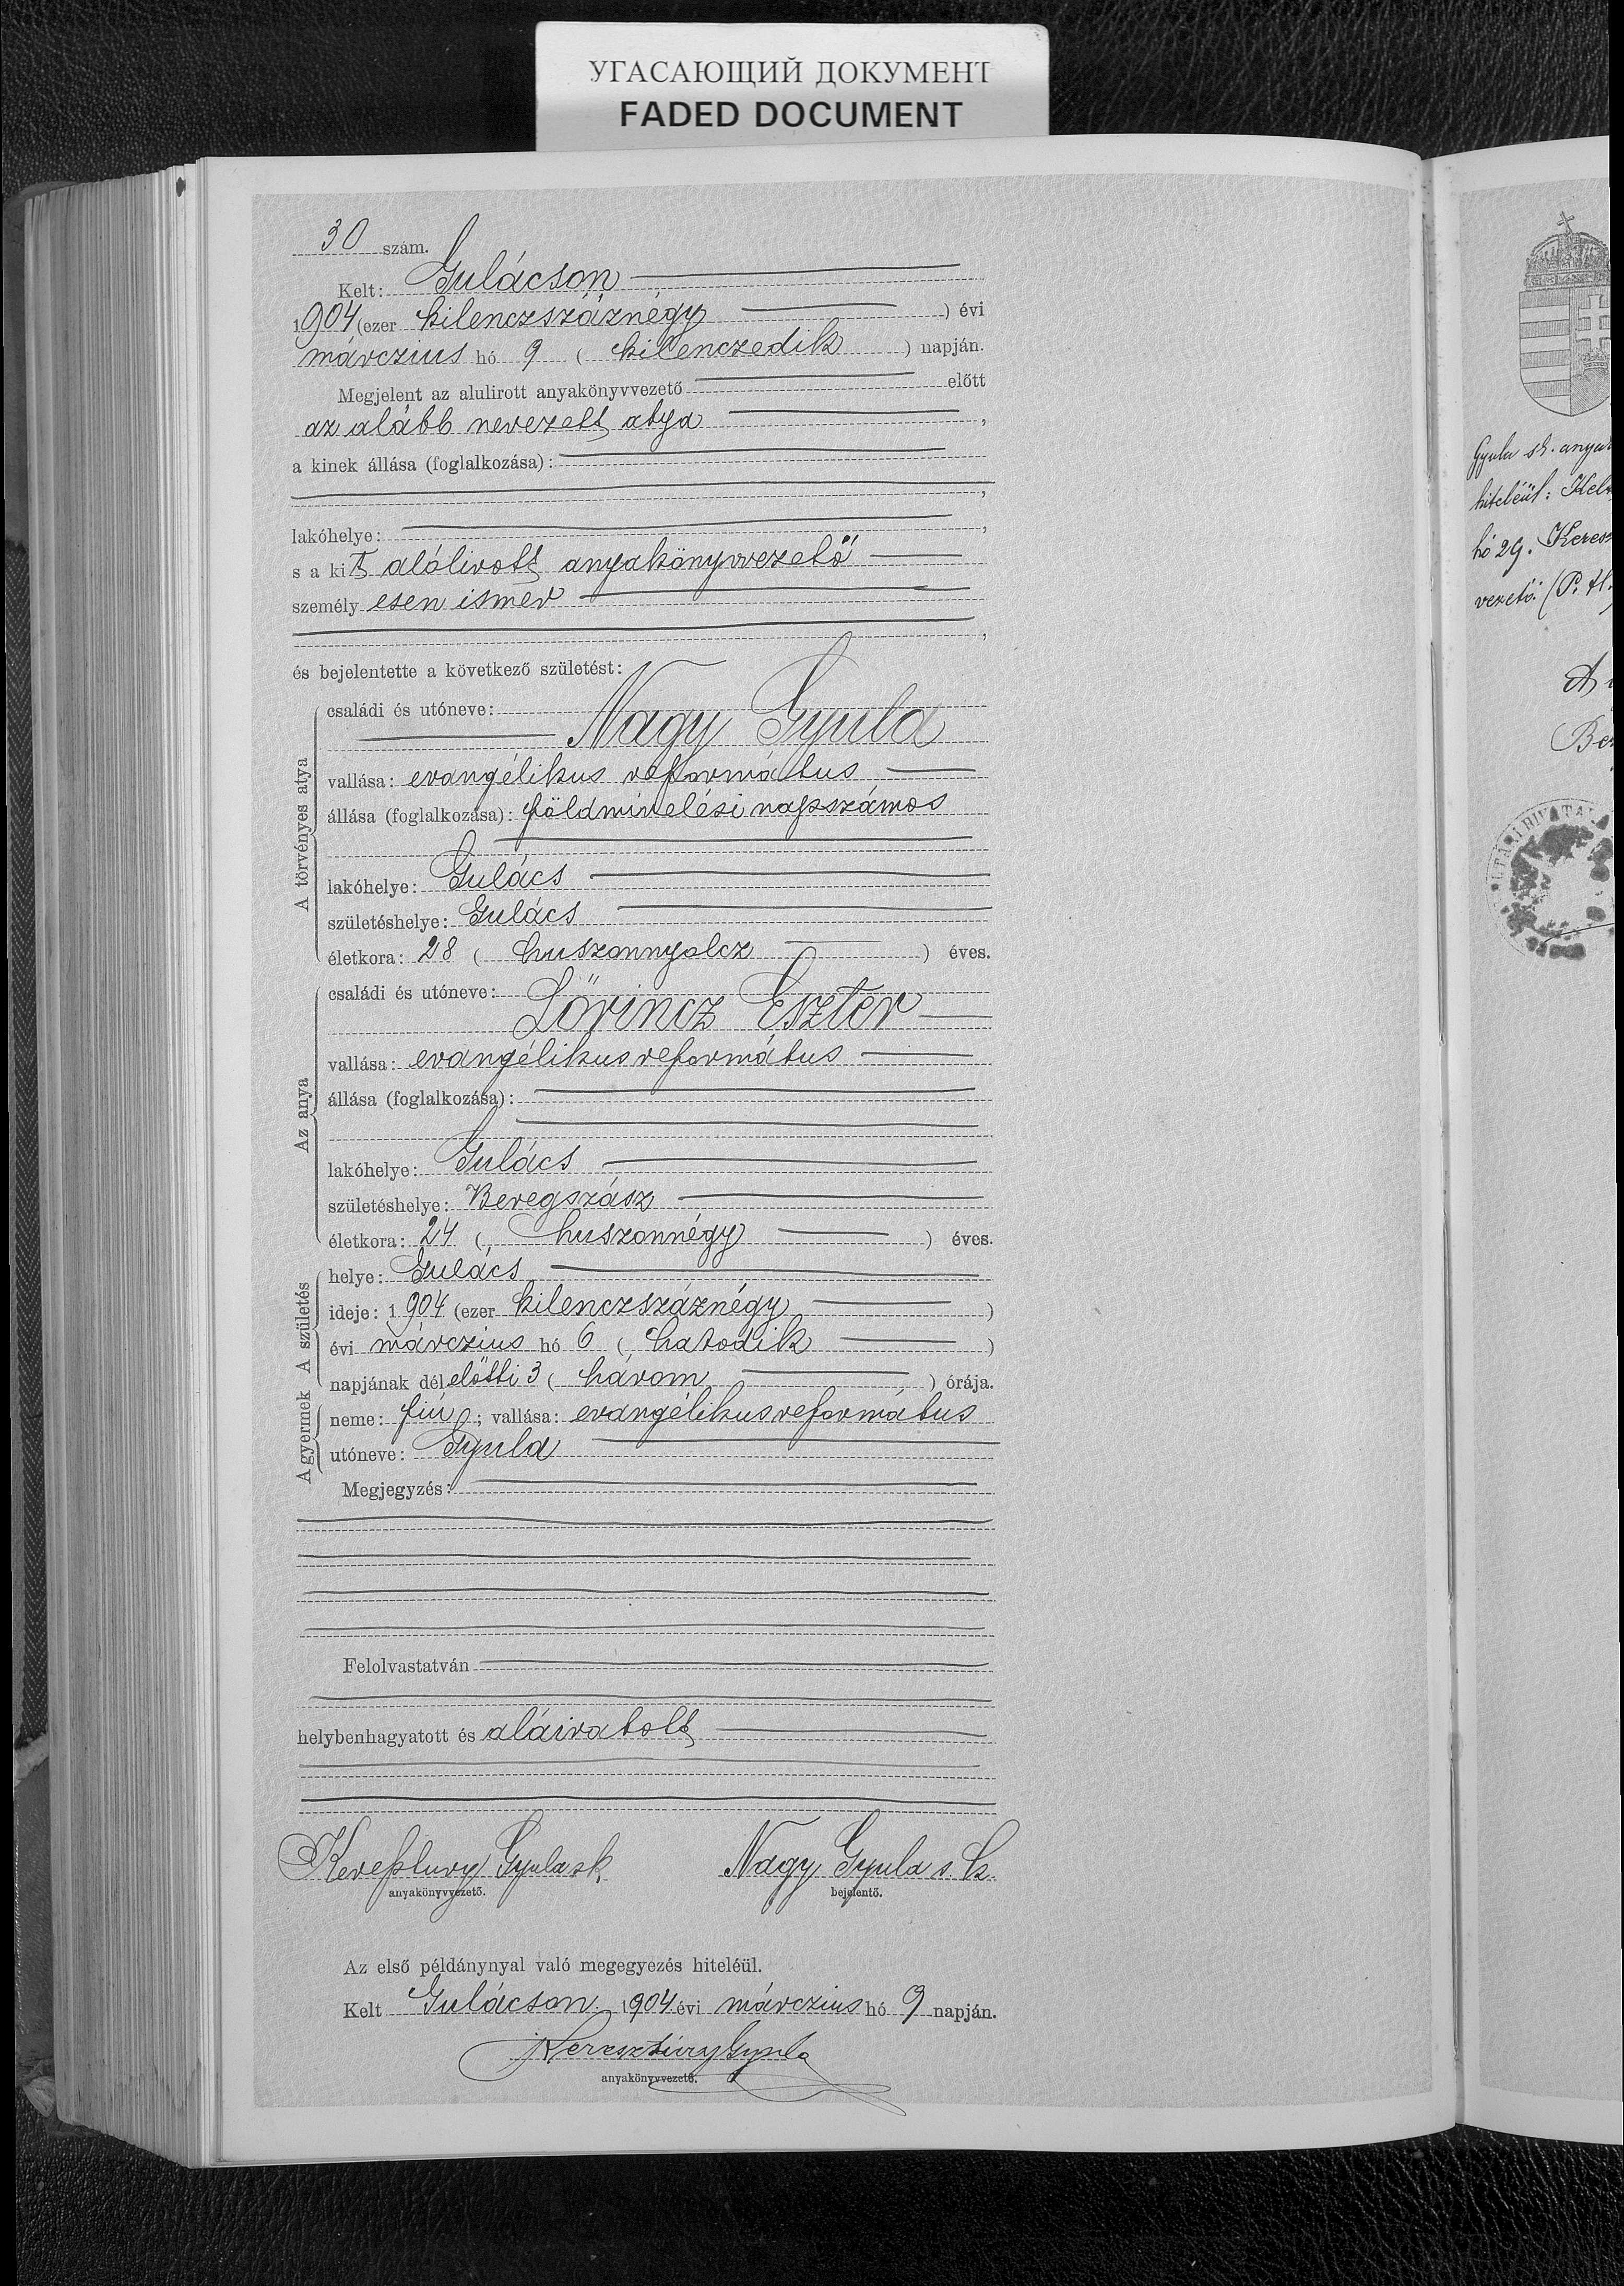 УГАСАЮЩИЙ ДОКУМЕНТ
FADED DOCUMENT
30 szám.
Kelt: Gulácson
1904 (ezer kilenczszáznégy ) évi
márczius hó 9 ( kilenczedik ) napján.
Megjelent az alulirott anyakönyvvezető előtt
az alább nevezett atya ,
a kinek állása (foglalkozása):
,
lakóhelye: ,
s a kit alólirott anyakönyvvezető
személyesen ismer
,
és bejelentette a következő születést:
A törvényes atya
családi és utóneve:
Nagy Gyula
vallása: evangélikus református
állása (foglalkozása): földmivelési napszámos
lakóhelye: Gulács
születéshelye: Gulács
életkora: 28 ( huszonnyolcz ) éves.
Az anya
családi és utóneve:
Lőrincz Eszter
vallása: evangélikus református
állása (foglalkozása):
lakóhelye: Gulács
születéshelye: Beregszász
életkora: 24 ( huszonnégy ) éves.
A születés
helye: Gulács
ideje: 1904 (ezer kilenczszáznégy )
évi márczius hó 6 ( hatodik )
napjának délelőtti 3 ( három ) órája.
A gyermek
neme: fiú ; vallása: evangélikus református
utóneve: Gyula
Megjegyzés:
Felolvastatván
helybenhagyatott és aláiratott
Kereſztury Gyula sk. Nagy Gyula s. k.
anyakönyvvezető. bejelentő.
Az első példánynyal való megegyezés hiteléül.
Kelt Gulácson 1904 évi márczius hó 9 napján.
Keresztúry Gyula
anyakönyvvezető.
Gyula sk. anya
hiteléül: Kel
hó 29. Keresz
vezető. (P. H.
A
Be